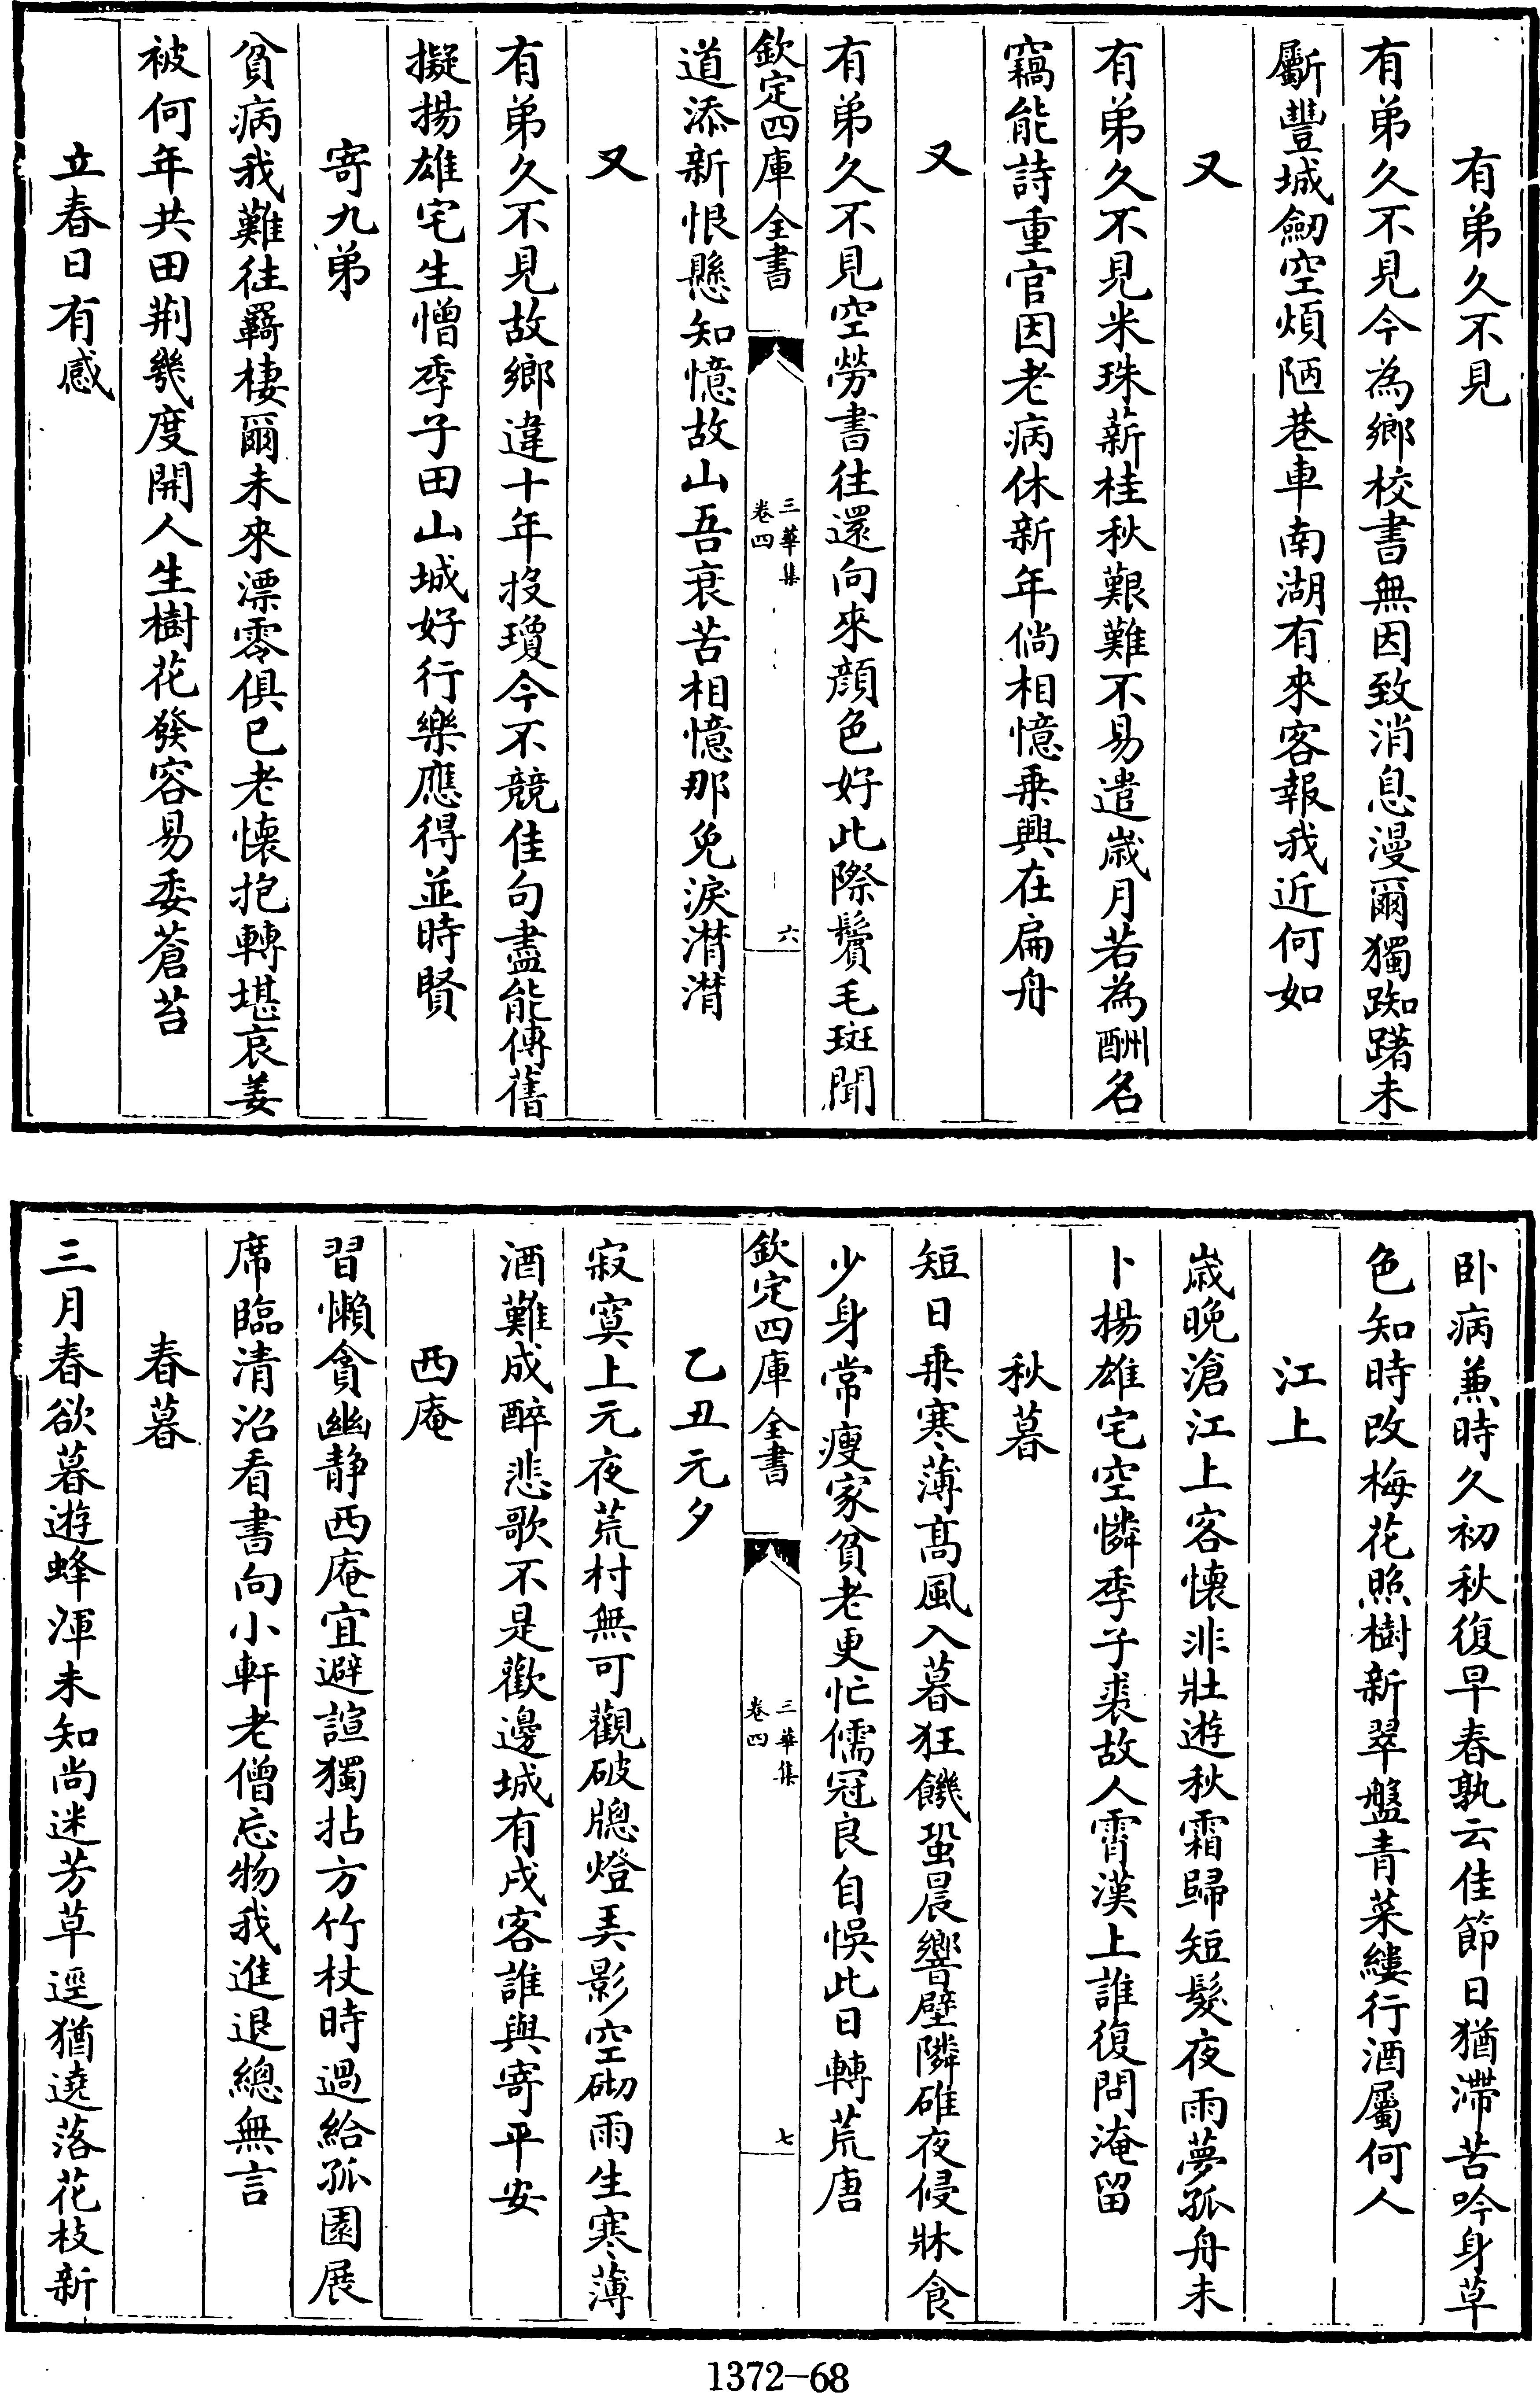 有弟久不見
有弟久不見今為鄉校書無因致消息漫爾獨踟躇未
斸豐城劒空煩陋巷車南湖有來客報我近何如
又
有弟久不見米珠薪桂秋艱難不易遣歳月若為酬名
竊能詩重官因老病休新年倘相憶乗興在扁舟
又
有弟久不見空勞書往還向來顔色好此際鬢毛斑聞
欽定四庫全書
三華集
卷四
六
道添新恨懸知憶故山吾衰苦相憶那免淚潸潸
又
有弟久不見故鄉違十年投瓊今不競佳句盡能傳舊
擬揚雄宅生憎季子田山城好行樂應得並時賢
寄九弟
貧病我難往羇棲爾未來漂零俱已老懐抱轉堪哀姜
被何年共田荆幾度開人生樹花發容易委蒼苔
立春日有感
卧病兼時久初秋復早春孰云佳節日猶滯苦吟身草
色知時改梅花照樹新翠盤青菜縷行酒屬何人
江上
歳晚滄江上客懐非壯遊秋霜歸短髮夜雨夢孤舟未
卜揚雄宅空憐季子裘故人霄漢上誰復問淹留
秋暮
短日乗寒薄髙風入暮狂饑蛩晨響壁隣碓夜侵牀食
少身常瘦家貧老更忙儒冠良自悞此日轉荒唐
欽定四庫全書
三華集
卷四
七
乙丑元夕
寂寞上元夜荒村無可觀破牕燈弄影空砌雨生寒薄
酒難成醉悲歌不是歡邊城有戍客誰與寄平安
西庵
習懶貪幽靜西庵宜避諠獨拈方竹杖時過給孤園展
席臨清沼看書向小軒老僧忘物我進退總無言
春暮
三月春欲暮遊蜂渾未知尚迷芳草逕猶遶落花枝新
1372-68